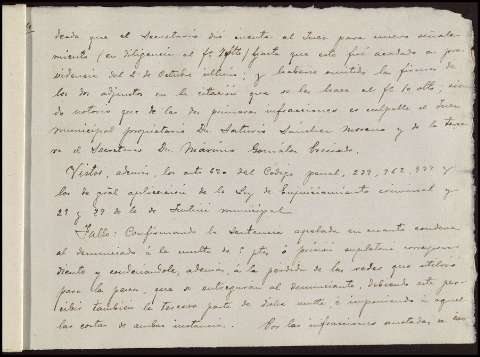 desde que el Secretario dió cuenta al Juez para nuevo señala-
miento (en diligencia al fº hasta que este fué acordado en pro-
videncia del 2 de Octubre último; y haberse omitido las firmas de
los dos adjuntos en la citación que se les hace al fº 10 vltº; sien-
do notorio que de las dos primeras infracciones es culpable el Juez
municipal propietario Dn. Saturio Sánchez Moreno y de la terce-
ra el Secretario Dn. Mariano González
Vistos, además, los artos del Código penal, y
los de gral aplicación de la Ley de Enjuiciamiento criminal y
de la de Justicia municipal.
Fallo: Confirmando la sentencia apelada en cuanto condena
al denunciado á la multa de 5 ptas ó prisión supletoria correspon-
diente y condenándole, además, á la pérdida de las redes que utilizó
para la pesca, que se entregarán al denunciante, debiendo este per-
cibir también la tercera parte de dicha multa é imponiendo á aquel
las costas de ambas instancias. Por las infracciones anotadas, se